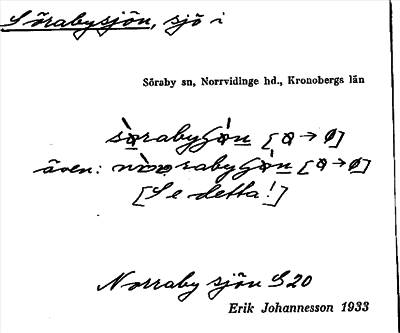 Sörabysjön, sjö i
Söraby sn, Norrvidinge hd., Kronobergs län
[ɑ → ø]
även:
[ɑ → ø]
[Se detta!]
Norraby sjön S20
Erik Johannesson 1933